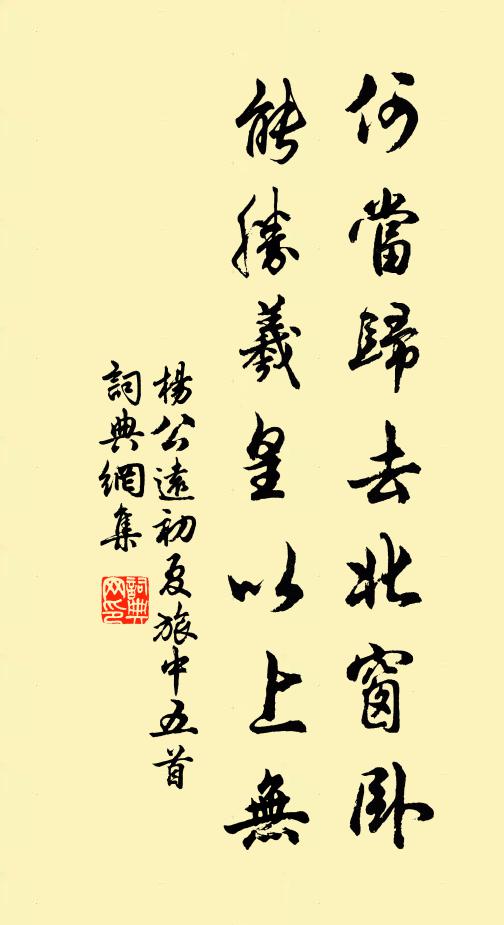 何當歸去北窗卧
能勝羲皇以上無
楊公遠初夏旅中五首
詞典網集
詞典網印